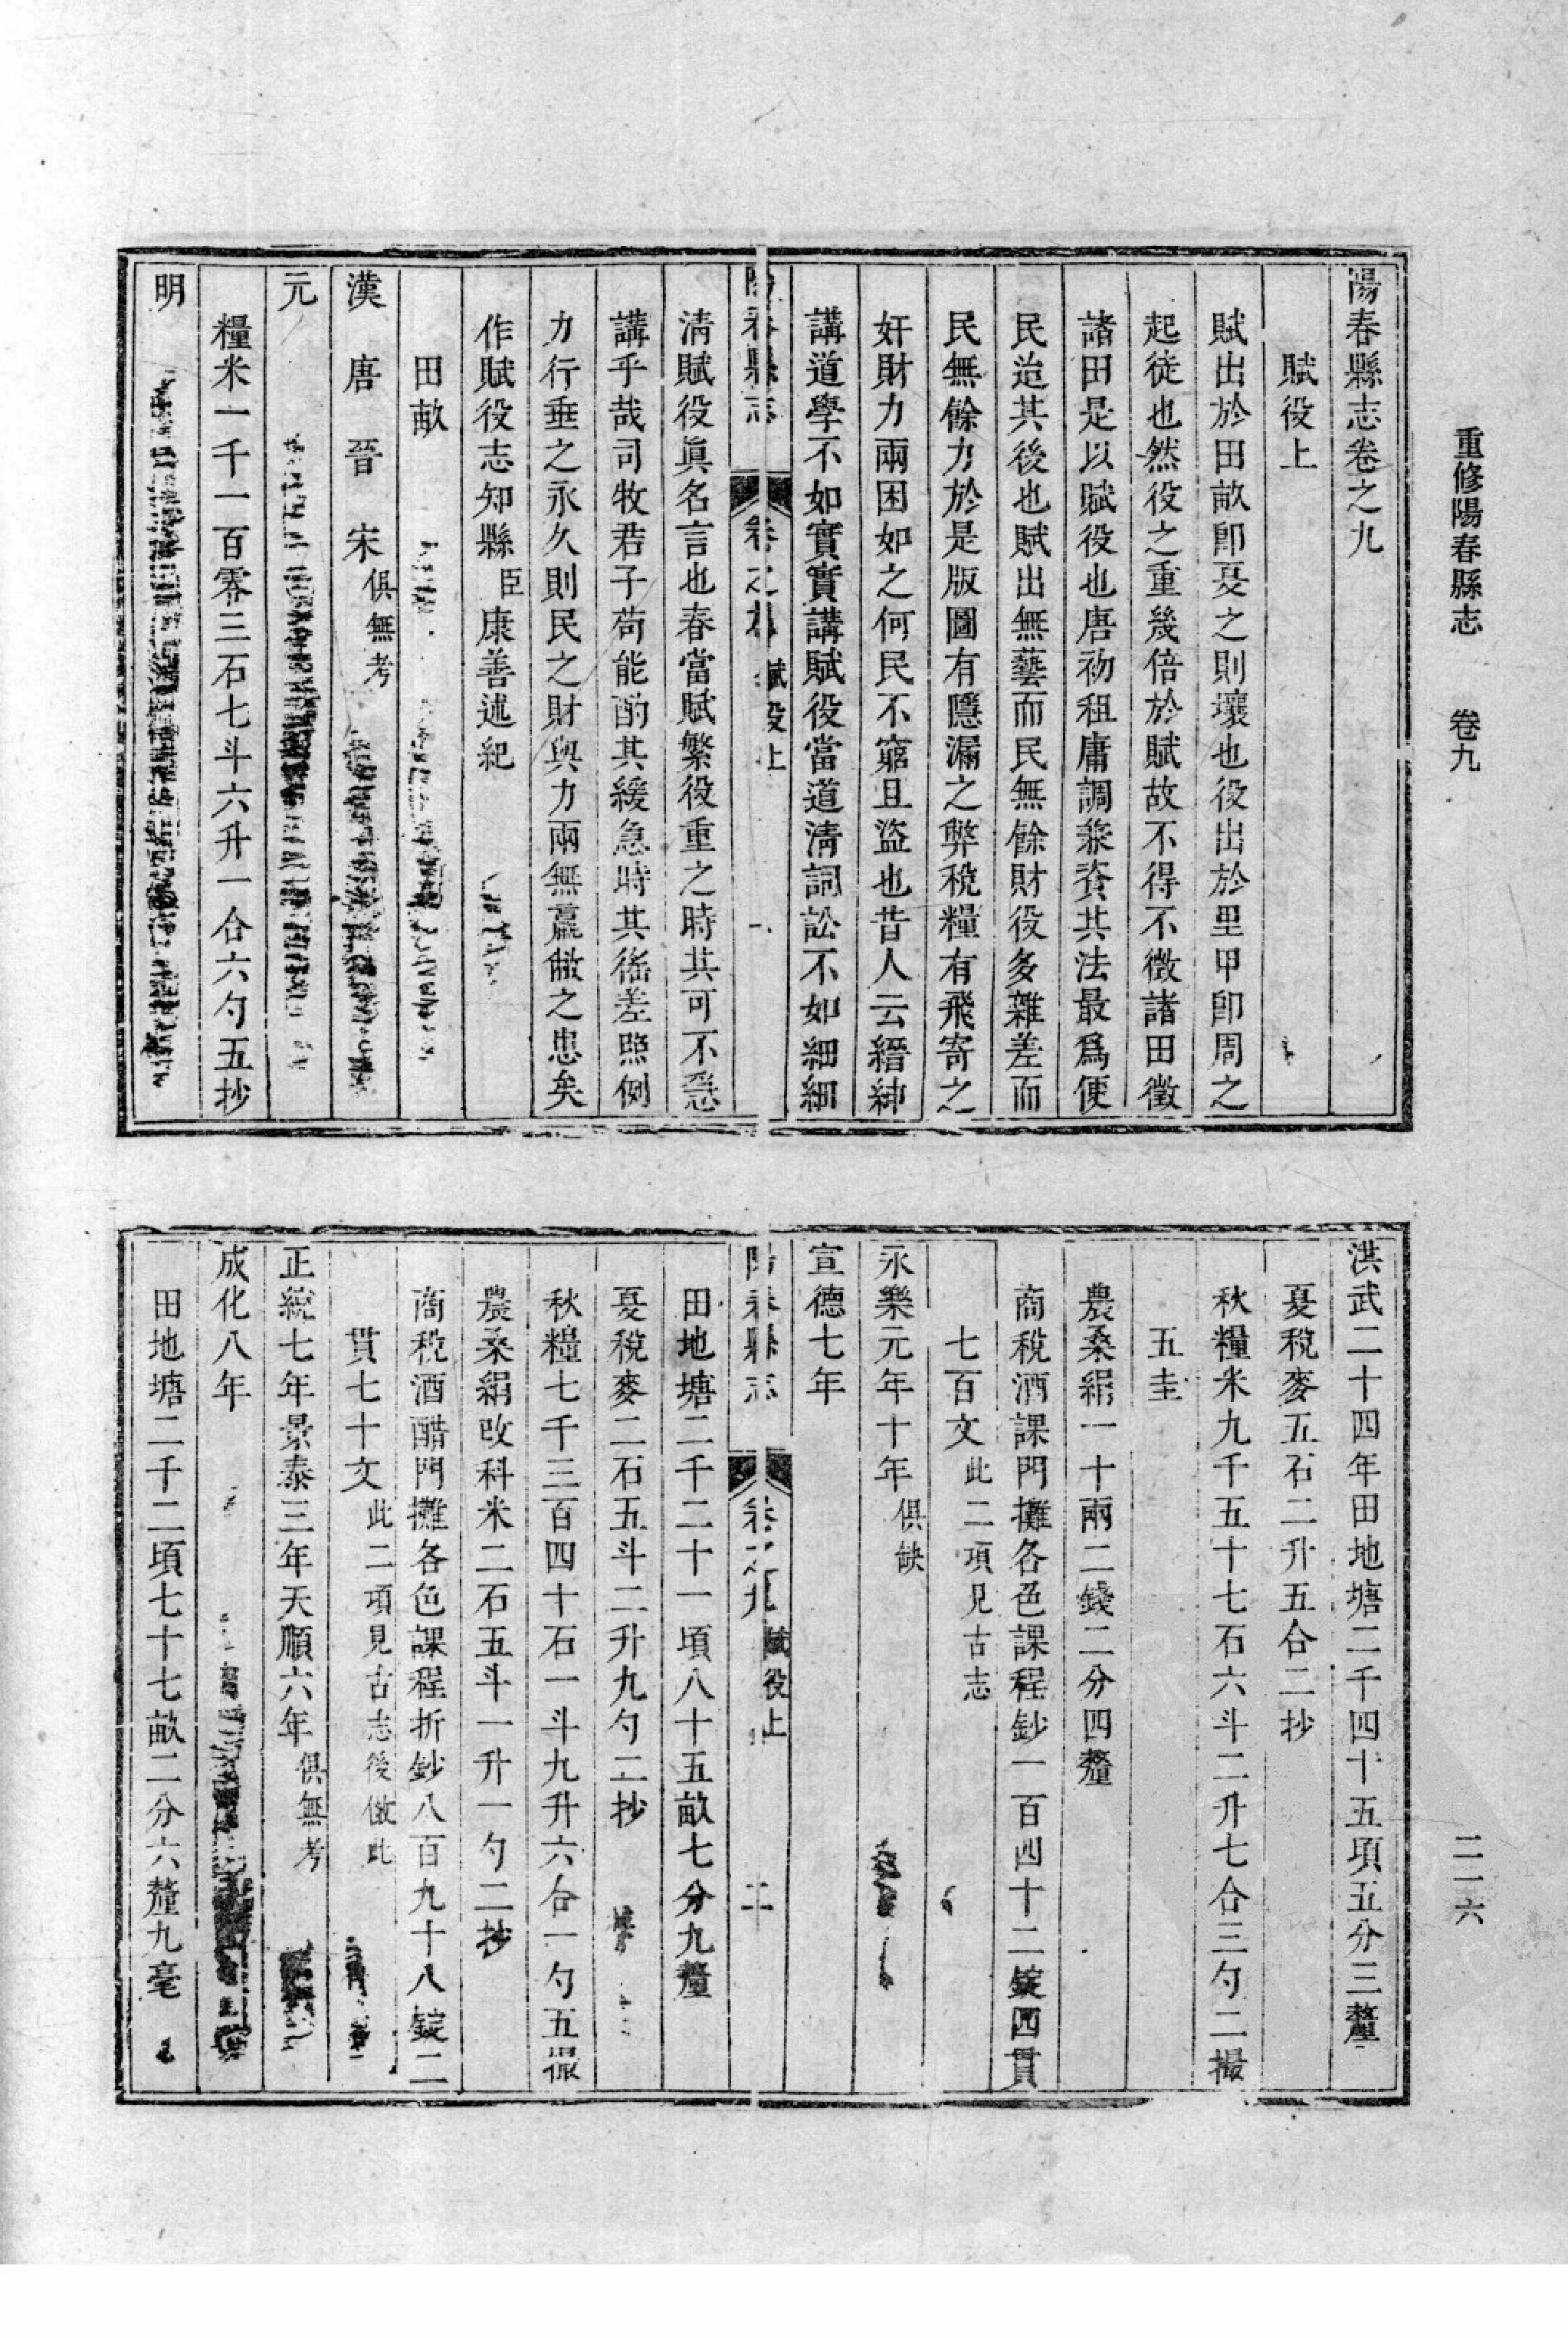 重修陽春縣志　卷九
二一六
陽春縣志卷之九
賦役上
賦出於田畝卽夏之則壤也役出於里甲卽周之
起徒也然役之重幾倍於賦故不得不徵諸田徵
諸田是以賦役也唐初租庸調兼資其法最爲便
民迨其後也賦出無藝而民無餘財役多雜差而
民無餘力於是版圖有隱漏之弊稅糧有飛寄之
奸財力兩困如之何民不窮且盜也昔人云縉紳
講道學不如實實講賦役當道淸詞訟不如細細
陽春縣志　卷之九　賦役上　一
淸賦役眞名言也春當賦繁役重之時其可不亟
講乎哉司牧君子苟能酌其緩急時其徭差照例
力行垂之永久則民之財與力兩無羸僦之患矣
作賦役志知縣臣康善述紀
田畝
漢　唐　晉　宋俱無考
元
糧米一千一百零三石七斗六升一合六勺五抄
明
洪武二十四年田地塘二千四十五項五分三釐
夏稅麥五石二升五合二抄
秋糧米九千五十七石六斗二升七合三勺二撮
五圭
農桑絹一十兩二錢二分四釐
商稅酒課門攤各色課程鈔一百四十二錠四貫
七百文此二項見古志
永樂元年十年俱缺
宣德七年
陽春縣志　卷之九　賦役上　二
田地塘二千二十一頃八十五畝七分九釐
夏稅麥二石五斗二升九勺二抄
秋糧七千三百四十石一斗九升六合一勺五撮
農桑絹改科米二石五斗一升一勺二抄
商稅酒醋門攤各色課程折鈔八百九十八錠二
貫七十文此二項見古志後倣此
正統七年景泰三年天順六年俱無考
成化八年
田地塘二千二頃七十七畝二分六釐九毫